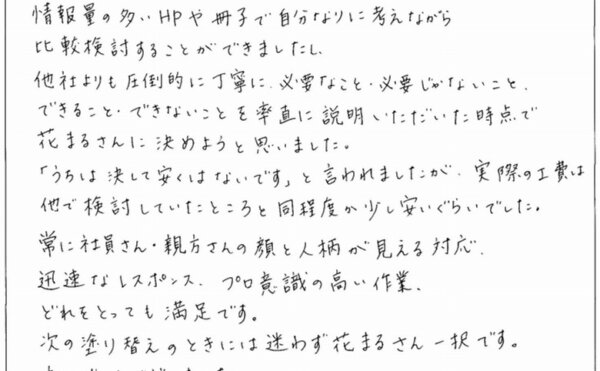 情報量の多いHPや冊子で自分なりに考えながら
比較検討することができましたし、
他社よりも圧倒的に丁寧に、必要なこと・必要じゃないこと、
できること・できないことを率直に説明いただいた時点で
花まるさんに決めようと思いました。
「うちは決して安くはないです」と言われましたが、実際の工費は
他で検討していたところと同程度か少し安いぐらいでした。
常に社員さん・親方さんの顔と人柄が見える対応、
迅速なレスポンス、プロ意識の高い作業、
どれをとっても満足です。
次の塗り替えのときには迷わず花まるさん一択です。